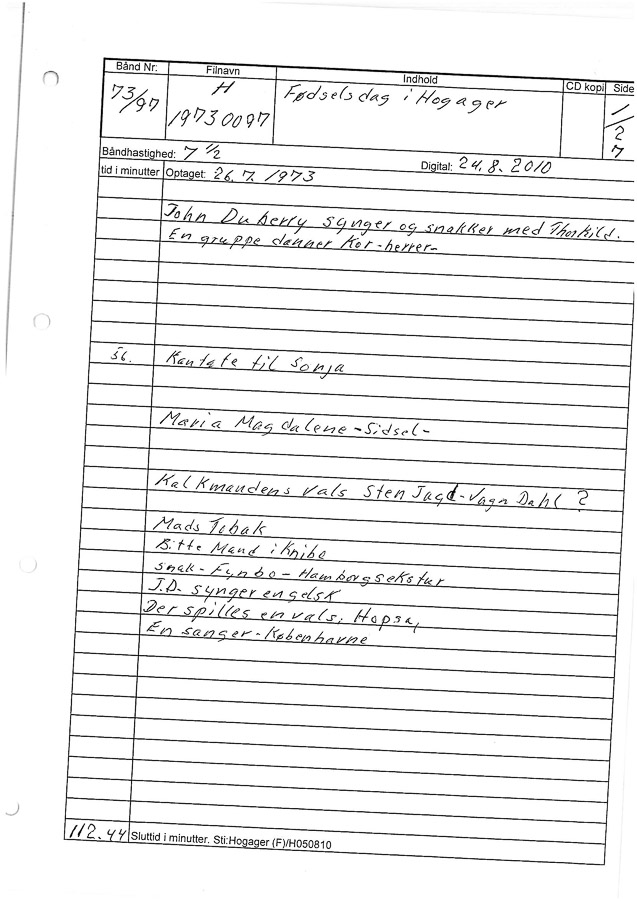 Bånd Nr. Filnavn Indhold CD kopi Side
73/97 H 19730097 Fødselsdag i Hogager 1/2 7
Båndhastighed: 7 1/2 Digital: 24.8.2010
tid i minutter Optaget: 26.7.1973
John Duberry synger og snakker med Thorkild.
En gruppe danner Kor-herrer-
36. Kantate til Sonja
Maria Magdalene-Sidsel-
Kalkmandens vals Sten Jagd-Vagn Dahl ?
Mads Tobak
Bitte Mand i Knibe
snak-Fynbo-Hamborgsekstur
J.D. synger engelsk
Der spilles en vals, Hopsa,
En sanger-Københavne
112.44 Sluttid i minutter. Sti:Hogager (F)/H050810